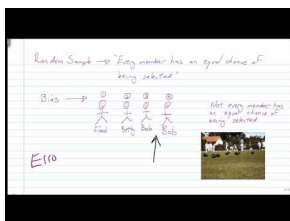 Random Sample → "Every member has an equal chance of
being selected"
Bias →
① ② ③ ④
Fred Betty Bob Bob
Not every member has
an equal chance of
being selected
Erro